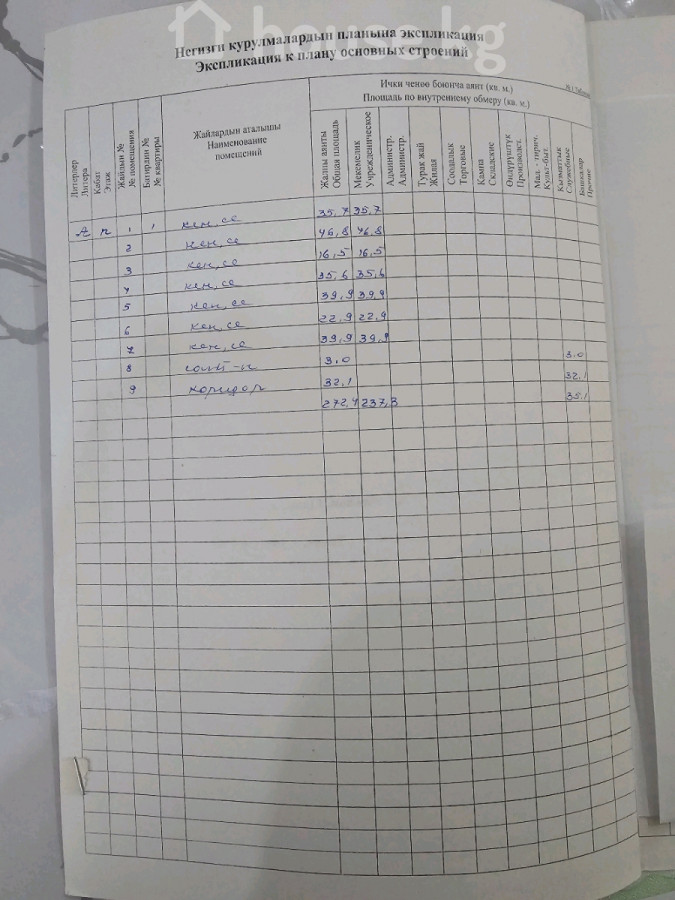 house.kg
Негизги курулмалардын планына экспликация
Экспликация к плану основных строений
Ички ченөө боюнча аянт (кв. м.)
Площадь по внутреннему обмеру (кв. м.)
Литерлер
Литера
Кабат
Этаж
Жайдын №
№ помещения
Батирдин №
№ квартиры
Жайлардын аталышы
Наименование
помещений
Жалпы аянты
Общая площадь
Мекемелик
Учрежденическое
Администр.
Администр.
Турак жай
Жилая
Соодалык
Торговые
Кампа
Складские
Өндүрүштүк
Производст.
Мад. - тирич.
Культ-быт.
Кызматтык
Служебные
Башкалар
Прочие
А п 1 1 кең, се 35,7 35,7
2 кең, се 46,8 46,8
3 кең, се 16,5 16,5
4 кең, се 35,6 35,6
5 кең, се 39,9 39,9
6 кең, се 22,9 22,9
7 кең, се 39,9 39,9
8 3,0 3,0
9 коридор 32,1 32,1
272,4 237,3 35,1